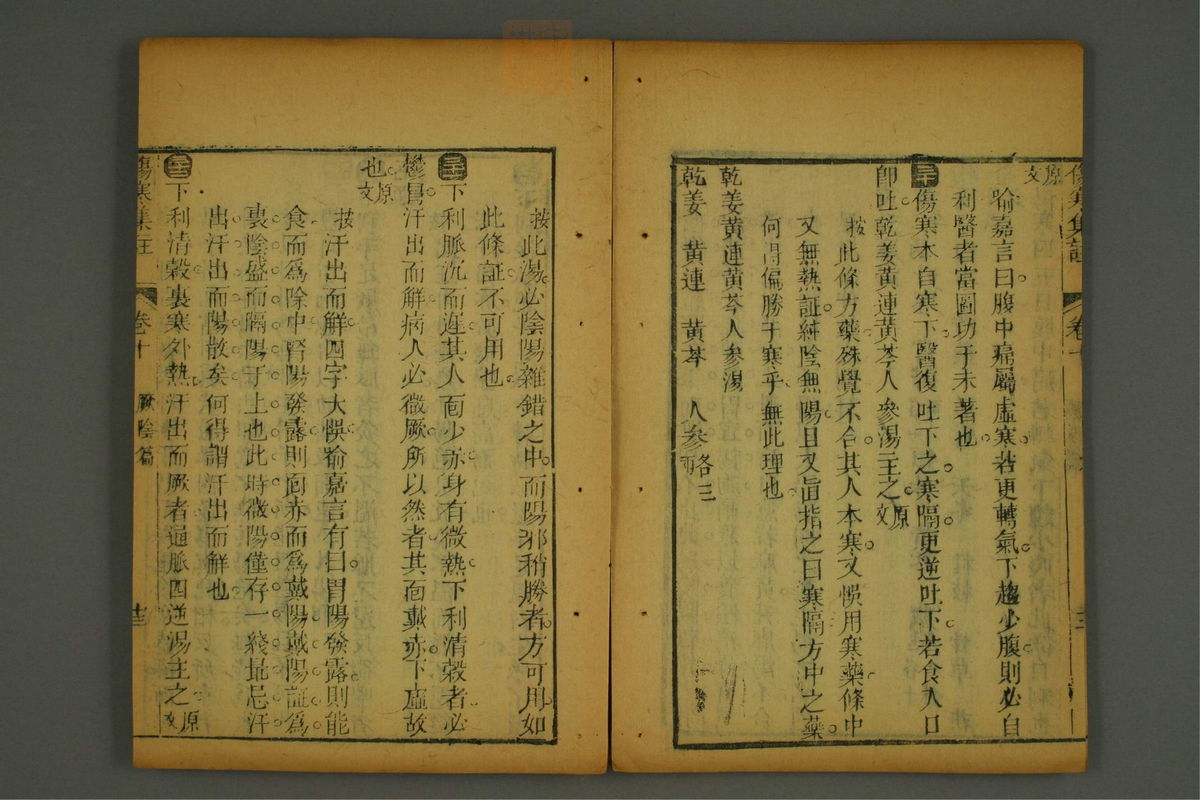 傷寒集註 卷十
原文
喻嘉言曰腹中痛屬虛寒若更轉氣下趨少腹則必自
利醫者當圖功于未著也
三十 傷寒本自寒下醫復吐下之寒隔更逆吐下若食入口
即吐乾姜黃連黃芩人參湯主之原文
按此條方藥殊覺不合其人本寒又悞用寒藥條中
又無熱証純陰無陽且又旨指之曰寒隔方中之藥
何得偏勝于寒乎無此理也
乾姜黃連黃芩人參湯
乾姜 黃連 黃芩 人參
按此湯必陰陽雜錯之中而陽邪稍勝者方可用如
此條証不可用也
三一 下利脈沉而遲其人面少赤身有微熱下利清穀者必
鬱冒汗出而解病人必微厥所以然者其面戴赤下虛故
也原文
按汗出而解四字大悞喻嘉言有曰胃陽發露則能
食而為除中腎陽發露則面赤而為戴陽戴陽証為
裏陰盛而隔陽于上也此時微陽僅存一綫最忌汗
出汗出而陽散矣何得謂汗出而解也
三二 下利清穀裏寒外熱汗出而厥者通脈四逆湯主之原文
傷寒集註 卷十 厥陰篇